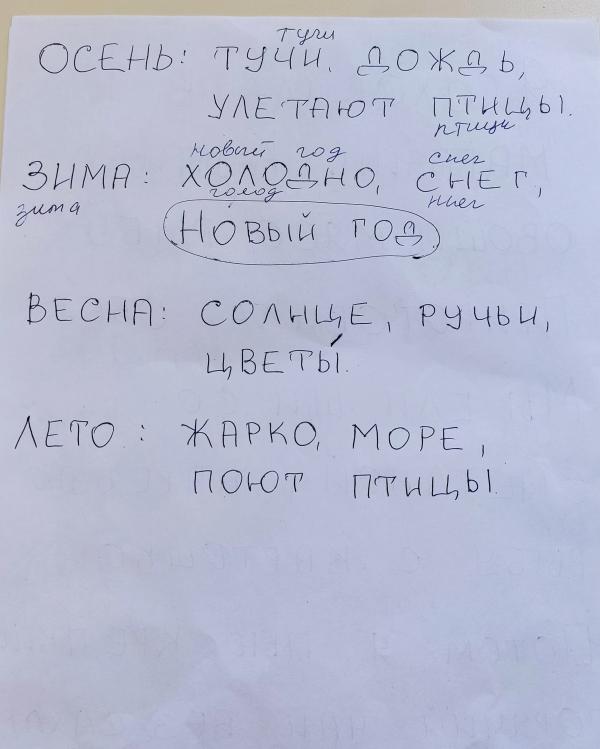 тучи
ОСЕНЬ: ТУЧИ, ДОЖДЬ,
УЛЕТАЮТ ПТИЦЫ.
птицы
новый год снег
ЗИМА: ХОЛОДНО, СНЕГ,
зима голод
НОВЫЙ ГОД
ВЕСНА: СОЛНЦЕ, РУЧЬИ,
ЦВЕТЫ.
ЛЕТО: ЖАРКО, МОРЕ,
ПОЮТ ПТИЦЫ.